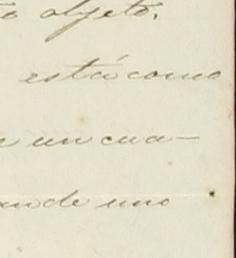 o objeto.
está como
e un cua-
ande uno